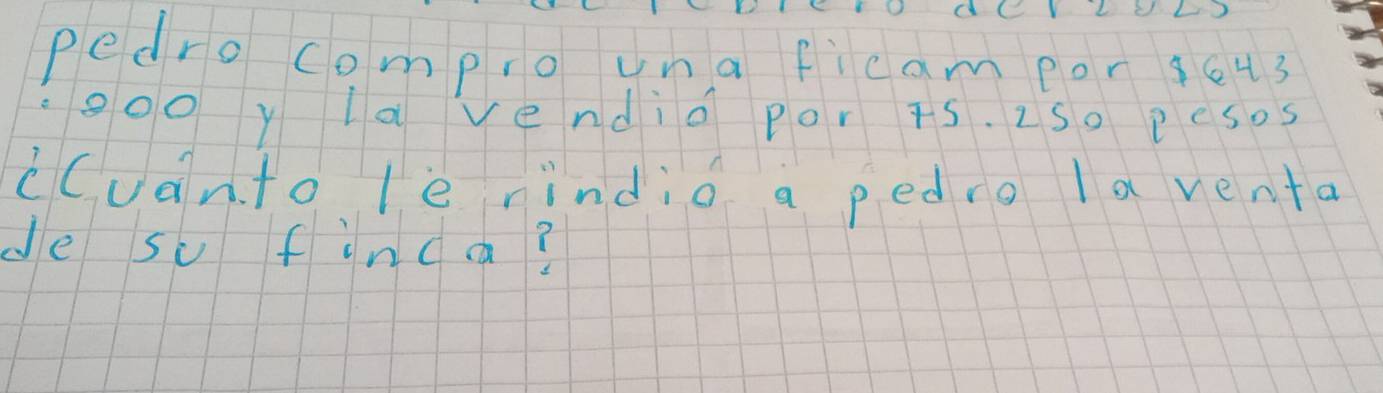 pedro compro una ficam por $643
.000 y la vendió por 75.250 pesos
¿Cuánto le rindió a pedro la venta
de su finca?